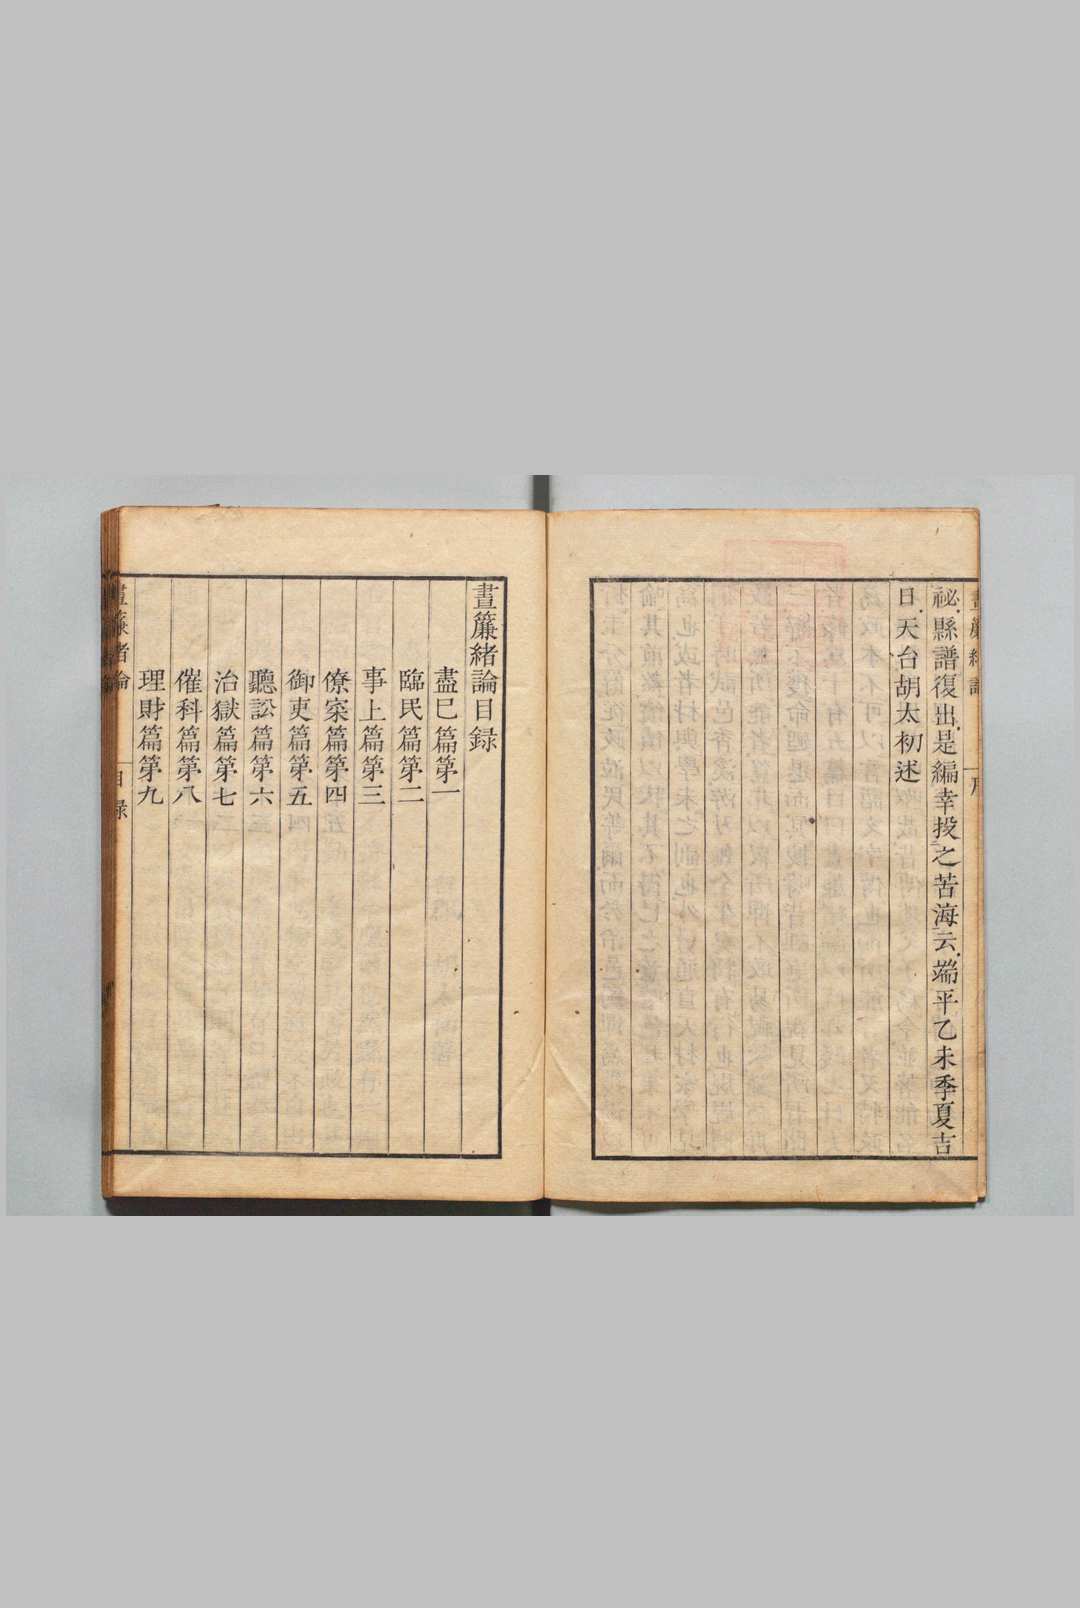 祕縣譜復出是編幸投之苦海云端平乙未季夏吉
日天台胡太初述
晝簾緒論目録
盡巳篇第一
臨民篇第二
事上篇第三
僚寀篇第四
御吏篇第五
聽訟篇第六
治獄篇第七
催科篇第八
理財篇第九
晝簾緒論
目録